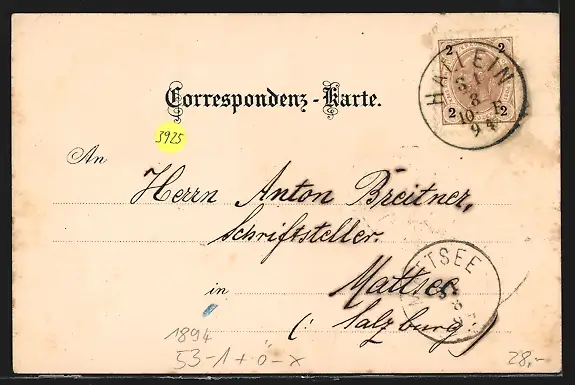 2 2
2 2
HALLEIN
31
8
10 F
94
Correspondenz-Karte.
3925
An
Herrn Anton Breitner,
Schriftsteller.
MATTSEE
in Mattsee
(: Salzburg)
1894
53-1+0-x
28,-